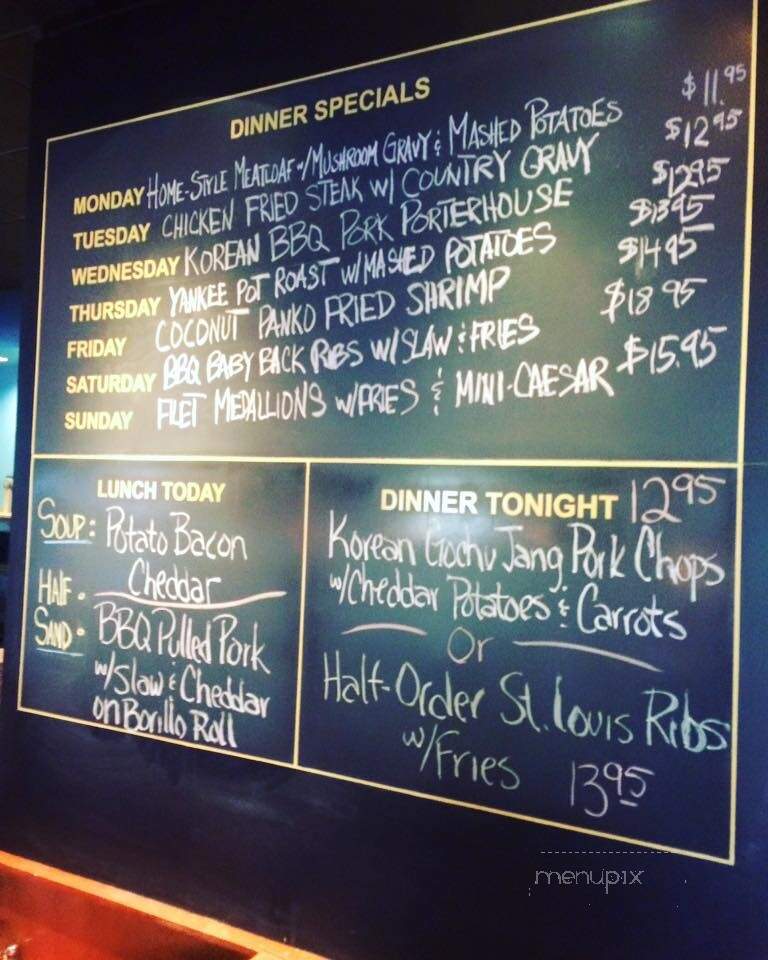 DINNER SPECIALS
MONDAY HOME-STYLE MEATLOAF w/MUSHROOM GRAVY & MASHED POTATOES $11.95
TUESDAY CHICKEN FRIED STEAK W/ COUNTRY GRAVY $12.95
WEDNESDAY KOREAN BBQ PORK PORTERHOUSE $12.95
THURSDAY YANKEE POT ROAST W/MASHED POTATOES $13.95
FRIDAY COCONUT PANKO FRIED SHRIMP $14.95
SATURDAY BBQ BABY BACK RIBS W/SLAW & FRIES $18.95
SUNDAY FILET MEDALLIONS w/FRIES & MINI-CAESAR $15.95
LUNCH TODAY
SOUP: Potato Bacon
Cheddar
HALF-
SAND- BBQ Pulled Pork
w/Slaw & Cheddar
on Borillo Roll
DINNER TONIGHT 12.95
Korean Gochu Jang Pork Chops
w/Cheddar Potatoes & Carrots
Or
Half-Order St. Louis Ribs
w/Fries 13.95
menupix